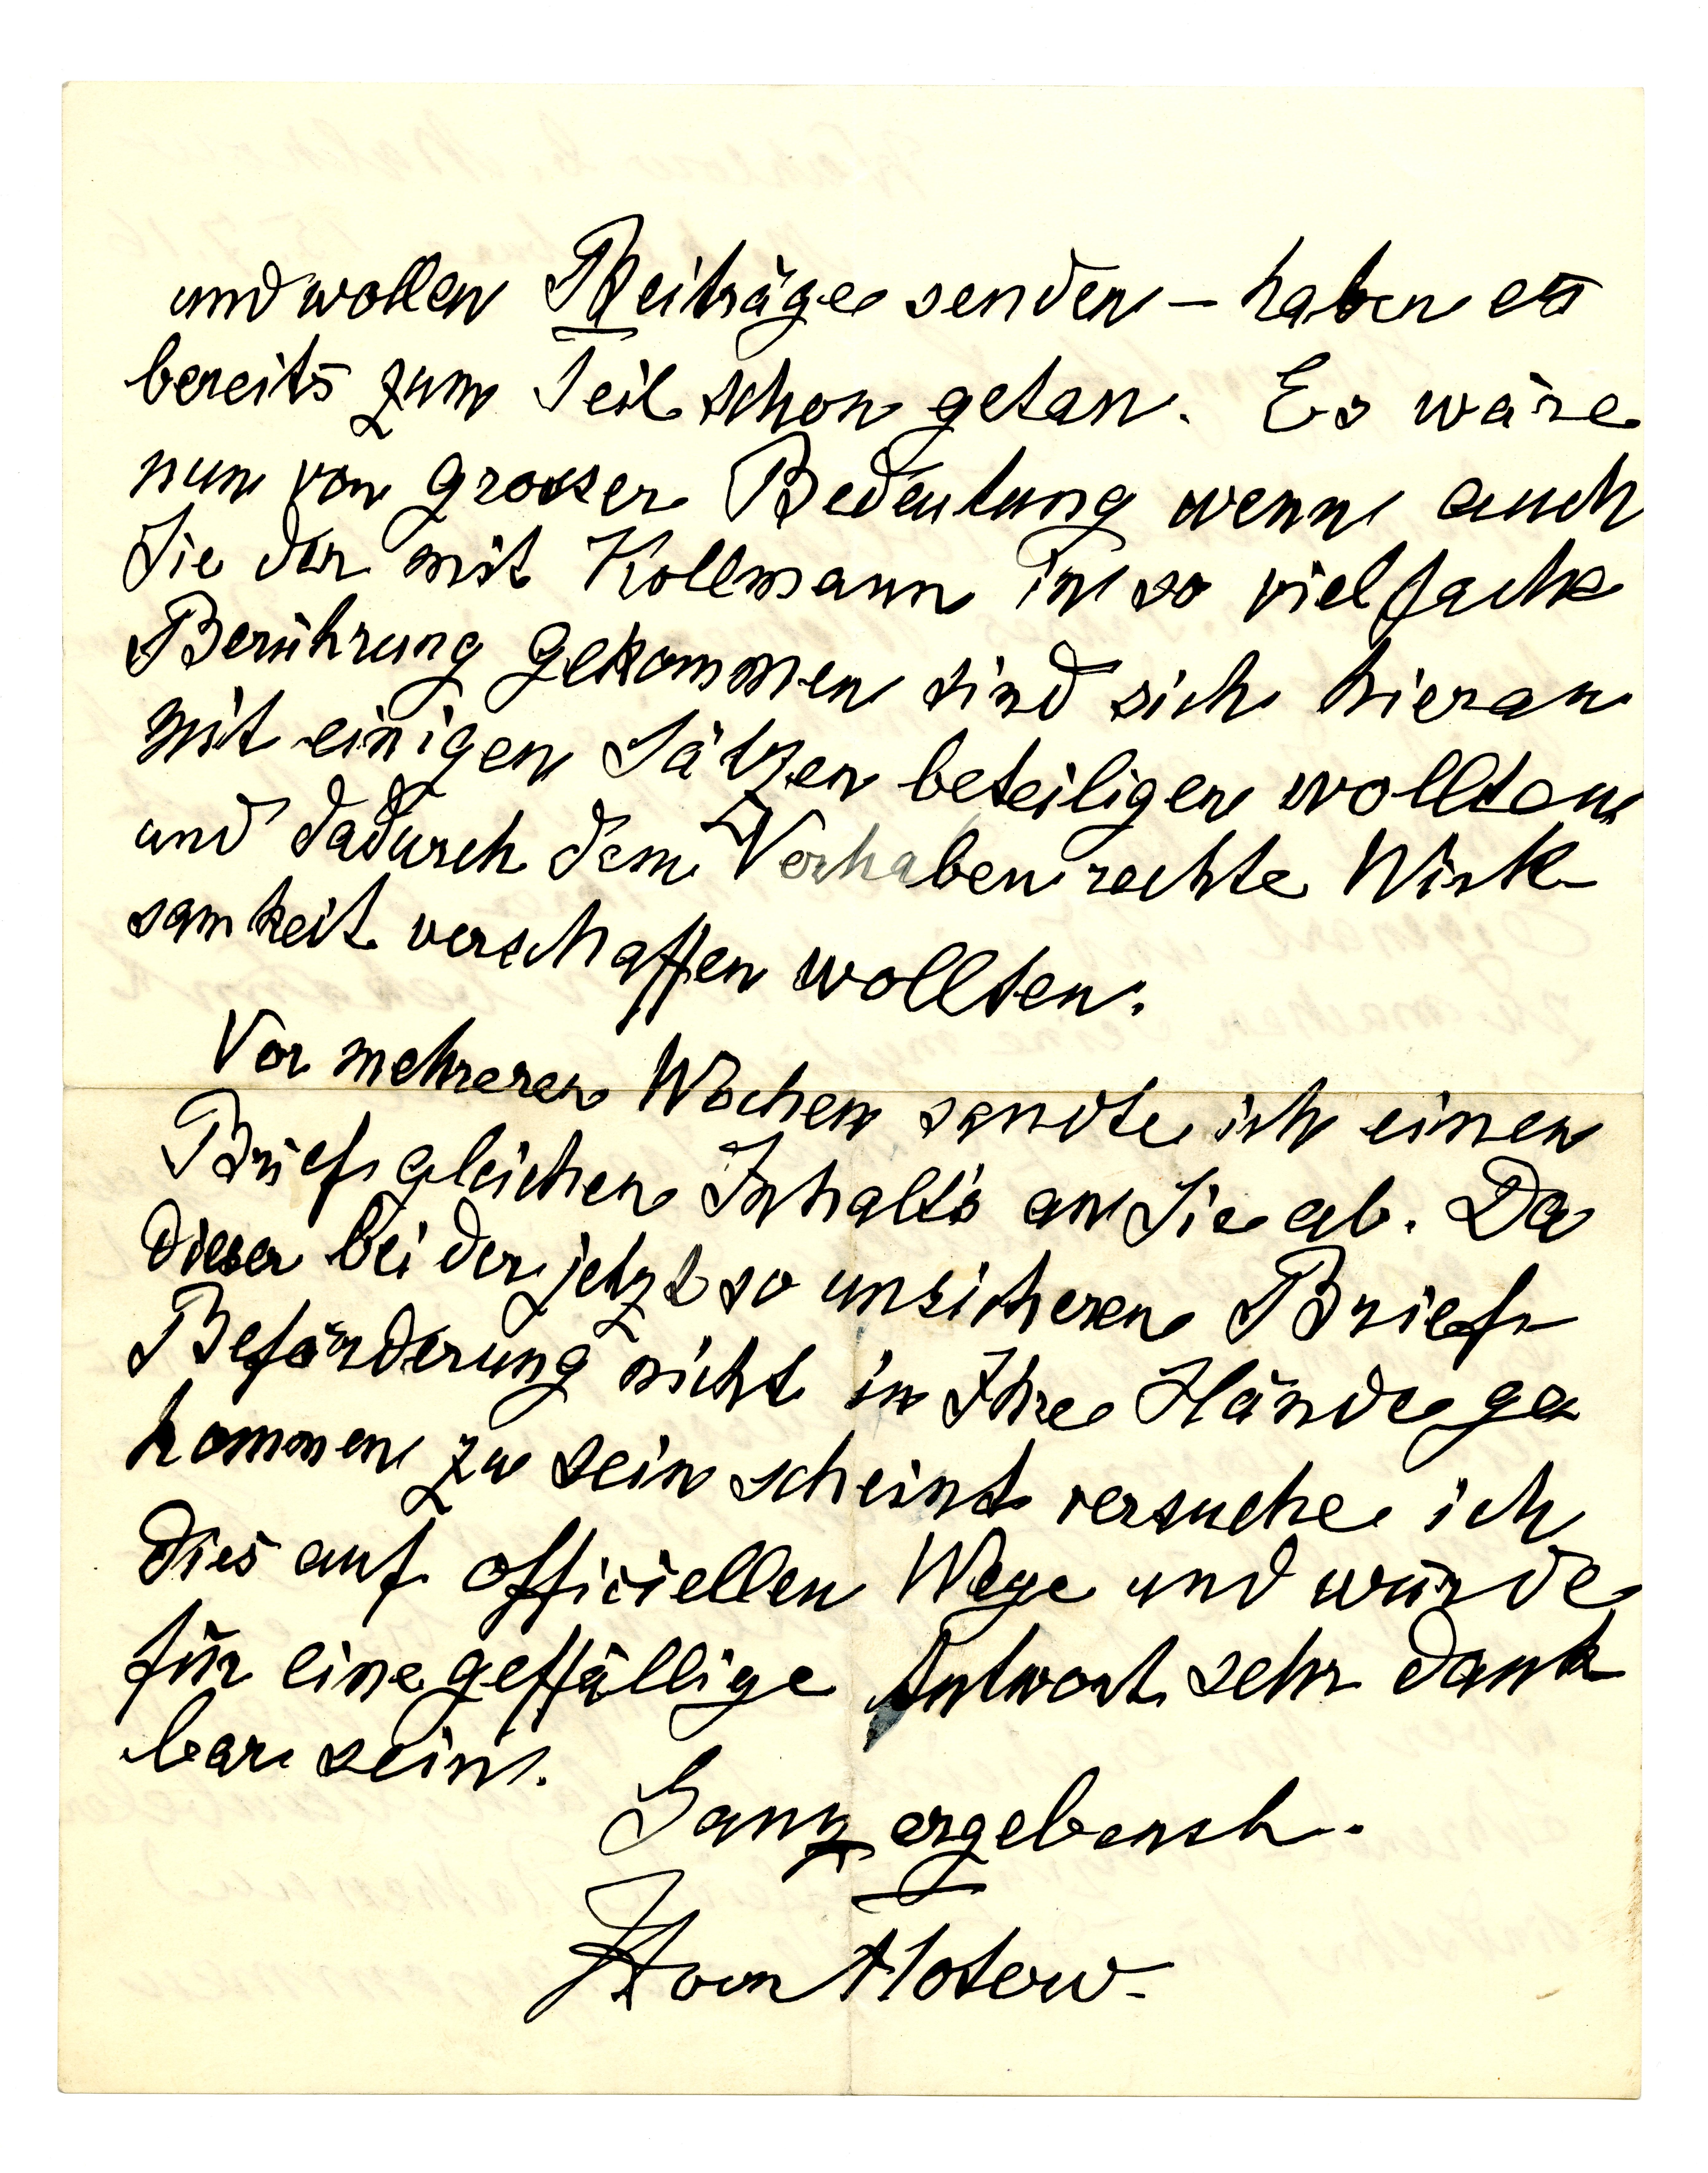 und wollen Beiträge senden – haben es
bereits zum Teil schon getan. Es wäre
nun von grosser Bedeutung wenn auch
Sie der mit Kollmann in so vielfache
Berührung gekommen sind sich hieran
mit einigen Sätzen beteiligen wollten
und dadurch dem Vorhaben rechte Wirk-
samkeit verschaffen wollten.
Vor mehreren Wochen sandte ich einen
Brief gleichen Inhalts an Sie ab. Da
dieser bei der jetzt so unsicheren Brief-
Beförderung nicht in Ihre Hände ge
kommen zu sein scheint versuche ich
dies auf officiellen Wege und würde
für eine geffällige Antwort sehr dank
bar sein.
Ganz ergebenst.
von Flotow-